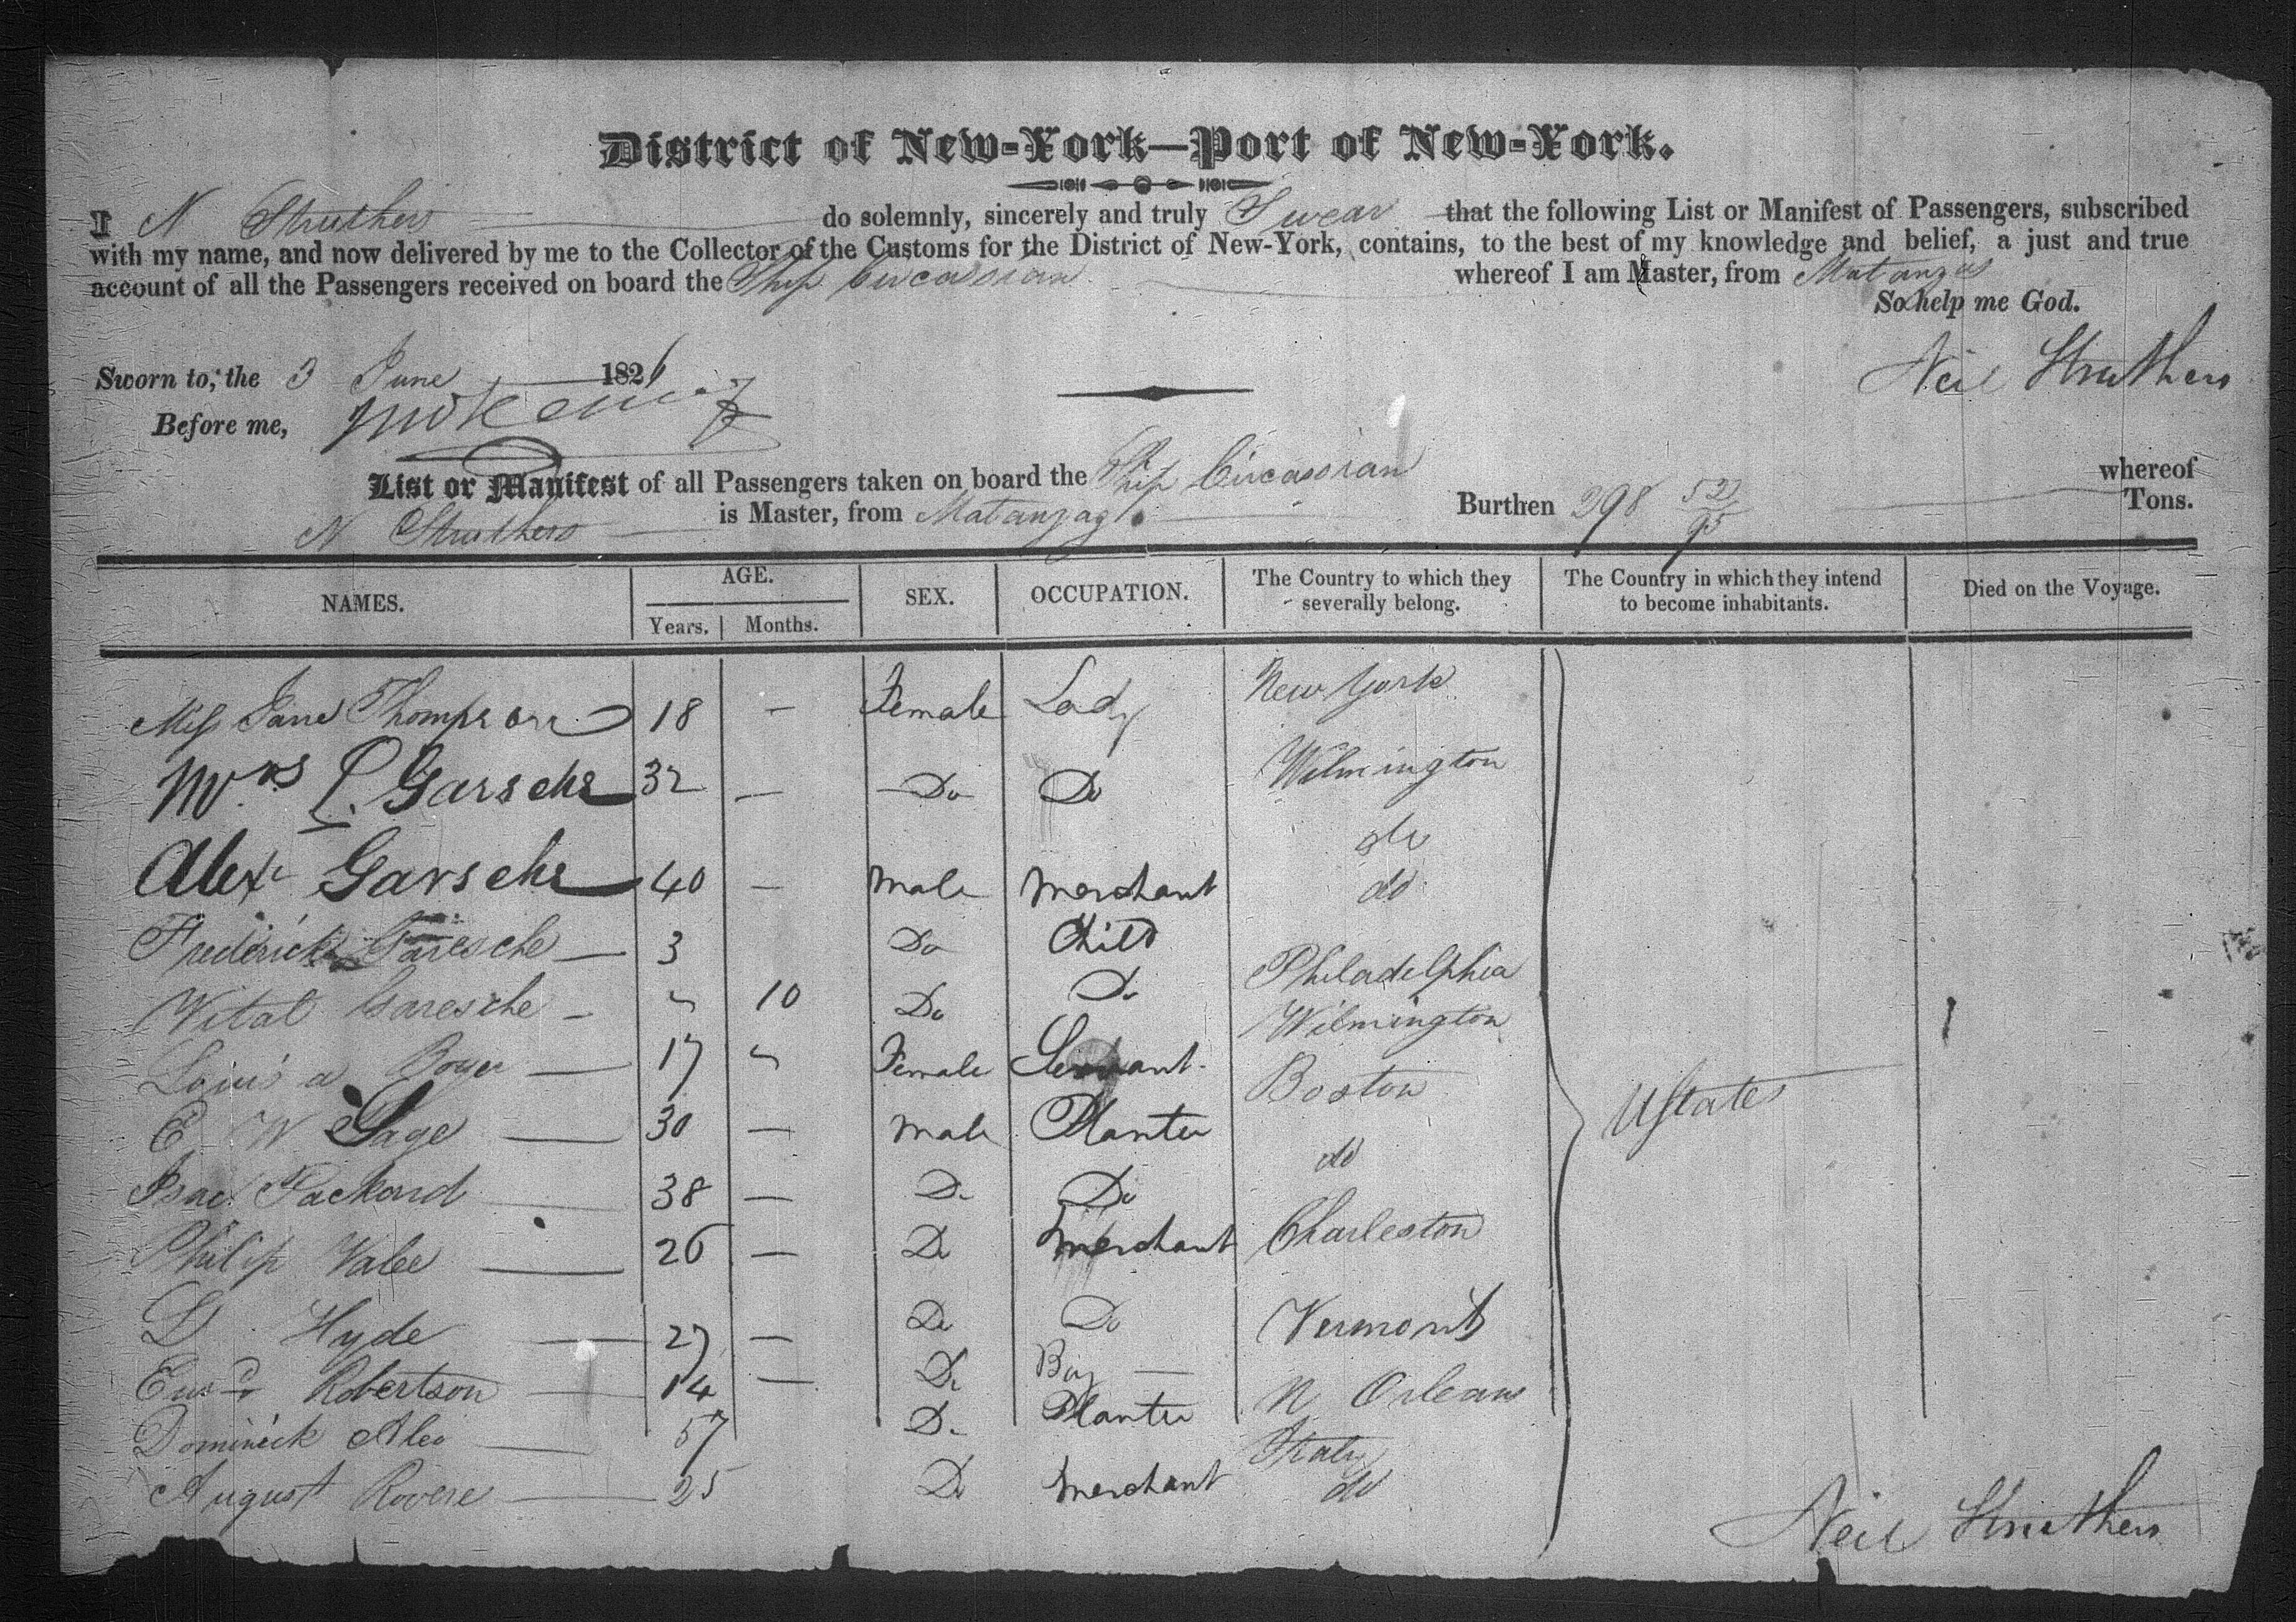 District of New-York—Port of New-York.
I N Struthers do solemnly, sincerely and truly Swear that the following List or Manifest of Passengers, subscribed
with my name, and now delivered by me to the Collector of the Customs for the District of New-York, contains, to the best of my knowledge and belief, a just and true
account of all the Passengers received on board the Ship Circassian whereof I am Master, from Matanzas
So help me God.
Sworn to, the 3 June 1826
Neil Struthers
Before me,
List or Manifest of all Passengers taken on board the Ship Circassian whereof
N Struthers is Master, from Matanzas Burthen 298 52/95 Tons.
NAMES. AGE. Years. Months. SEX. OCCUPATION. The Country to which they severally belong. The Country in which they intend to become inhabitants. Died on the Voyage.
Miss Jane Thompson 18 — Female Lady New York
Mrs L. Garsche 32 — Do Do Wilmington
do
Alexr Garsche 40 — Male Merchant do
Frederick Garesche — 3 Do Child Philadelphia
Vital Garesche — " 10 Do Do Wilmington
Louisa Boyer — 17 " Female Servant Boston
E W Sage — 30 — Male Planter do
Isac Packard 38 — Do Do Charleston
Philip Valee — 26 — Do Merchant
D Hyde — 27 — Do Do Vermont
Robertson — 14 — Do Boy — N Orleans
Dominick — 57 Do Planter Italy
August Rovere — 25 Do Merchant do
UStates
Neil Struthers